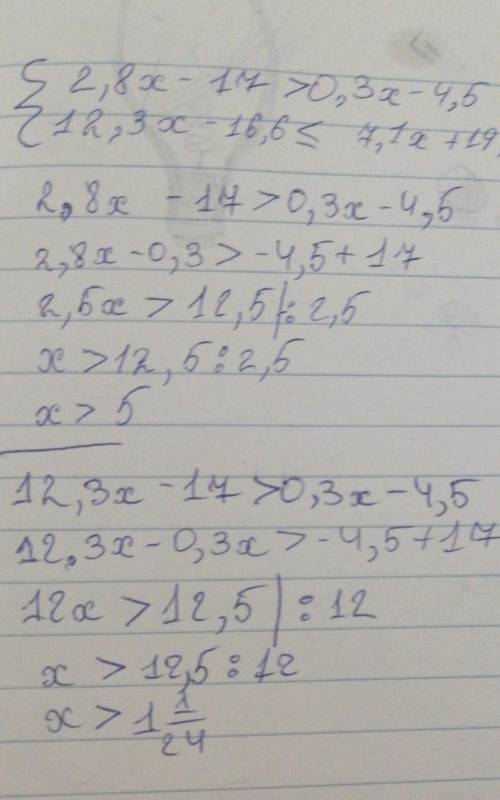 { 2,8x - 17 > 0,3x - 4,5
{ 12,3x - 16,6 ≤ 7,1x + 19
2,8x - 17 > 0,3x - 4,5
2,8x - 0,3 > -4,5 + 17
2,5x > 12,5 | : 2,5
x > 12,5 : 2,5
x > 5
12,3x - 17 > 0,3x - 4,5
12,3x - 0,3x > -4,5 + 17
12x > 12,5 | : 12
x > 12,5 : 12
x > 1 1/24